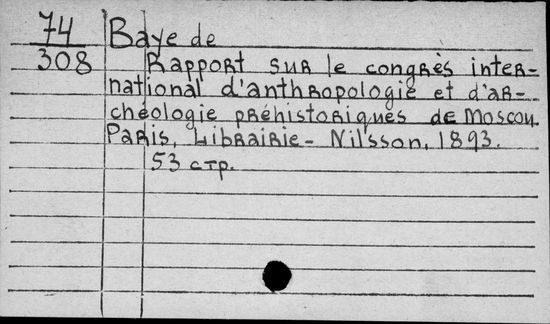 74 Baye de
308 Rapport sur le congrès inter-
national d'anthropologie et d'ar-
chéologie préhistoriques de Moscou.
Paris, Librairie- Nilsson, 1893.
53 стр.